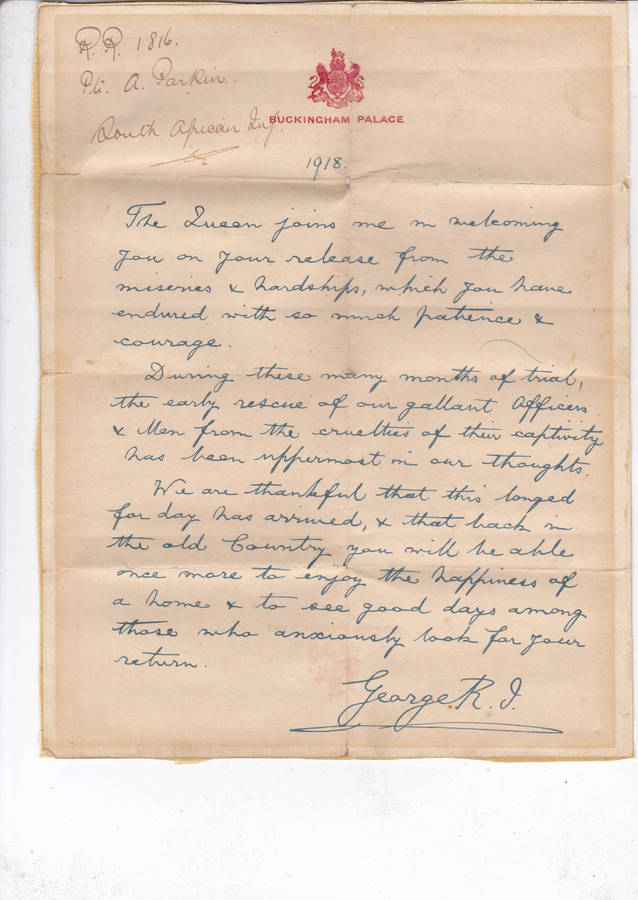 R.R. 1816.
Pte. A. Parkin.
South African Inf.
BUCKINGHAM PALACE
1918.
The Queen joins me in welcoming
you on your release from the
miseries & hardships, which you have
endured with so much patience &
courage.
During these many months of trial,
the early rescue of our gallant Officers
& Men from the cruelties of their captivity
has been uppermost in our thoughts.
We are thankful that this longed
for day has arrived, & that back in
the old Country you will be able
once more to enjoy the happiness of
a home & to see good days among
those who anxiously look for your
return.
George R.I.